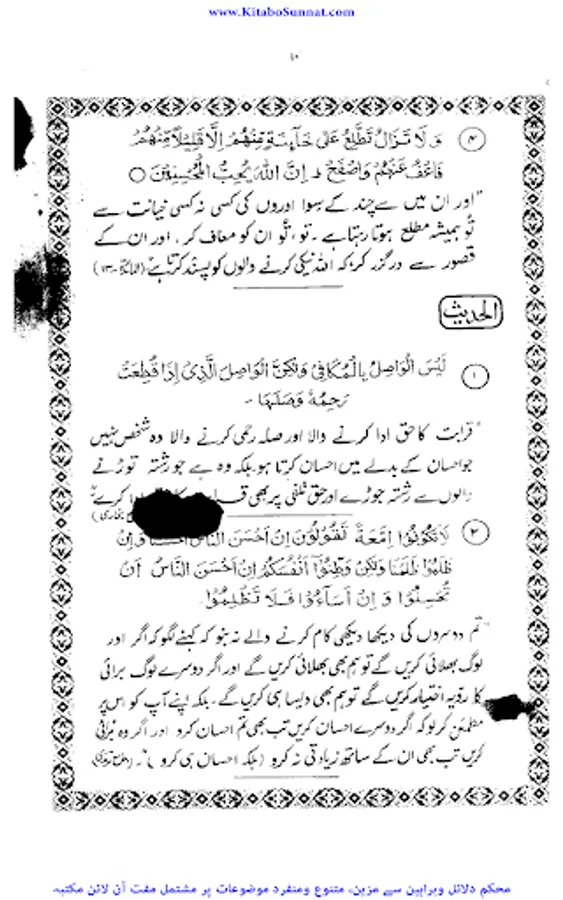 www.KitaboSunnat.com
۱۰
۴ وَلَا تَزَالُ تَطَّلِعُ عَلٰى خَآىِٕنَةٍ مِّنْهُمْ اِلَّا قَلِیْلًا مِّنْهُمْ
فَاعْفُ عَنْهُمْ وَاصْفَحْ ؕ اِنَّ اللّٰهَ یُحِبُّ الْمُحْسِنِیْنَ ○
"اور ان میں سے چند کے سوا اوروں کی کسی نہ کسی خیانت سے
تُو ہمیشہ مطلع ہوتا رہتا ہے۔ تو، تُو ان کو معاف کر، اور ان کے
قصور سے درگزر کر، کہ اللہ نیکی کرنے والوں کو پسند کرتا ہے" (المائدۃ-۱۳)
الحدیث
۱ لَیْسَ الْوَاصِلُ بِالْمُكَافِیْ وَلٰكِنَّ الْوَاصِلَ الَّذِیْ اِذَا قُطِعَتْ
رَحِمُهٗ وَصَلَهَا ۔
"قرابت کا حق ادا کرنے والا اور صلہ رحمی کرنے والا وہ شخص نہیں
جو احسان کے بدلے میں احسان کرتا ہو بلکہ وہ ہے جو رشتہ توڑنے
والوں سے رشتہ جوڑے اور حق تلفی پر بھی کرے"
بخاری)
۲ لَا تَكُوْنُوْا اِمَّعَةً تَقُوْلُوْنَ اِنْ اَحْسَنَ النَّاسُ اَحْسَنَّا وَاِنْ
ظَلَمُوْا ظَلَمْنَا وَلٰكِنْ وَطِّنُوْا اَنْفُسَكُمْ اِنْ اَحْسَنَ النَّاسُ اَنْ
تُحْسِنُوْا وَاِنْ اَسَآءُوْا فَلَا تَظْلِمُوْا۔
"تم دوسروں کی دیکھا دیکھی کام کرنے والے نہ بنو کہ کہنے لگو کہ اگر اور
لوگ بھلائی کریں گے تو ہم بھی بھلائی کریں گے اور اگر دوسرے لوگ برائی
کا رویہ اختیار کریں گے تو ہم بھی ویسا ہی کریں گے، بلکہ اپنے آپ کو اس پر
مطمئن کر لو کہ اگر دوسرے احسان کریں تب بھی تم احسان کرو اور اگر وہ برائی
کریں تب بھی ان کے ساتھ زیادتی نہ کرو (بلکہ احسان ہی کرو)"۔
محکم دلائل وبراہین سے مزین، متنوع ومنفرد موضوعات پر مشتمل مفت آن لائن مکتبہ